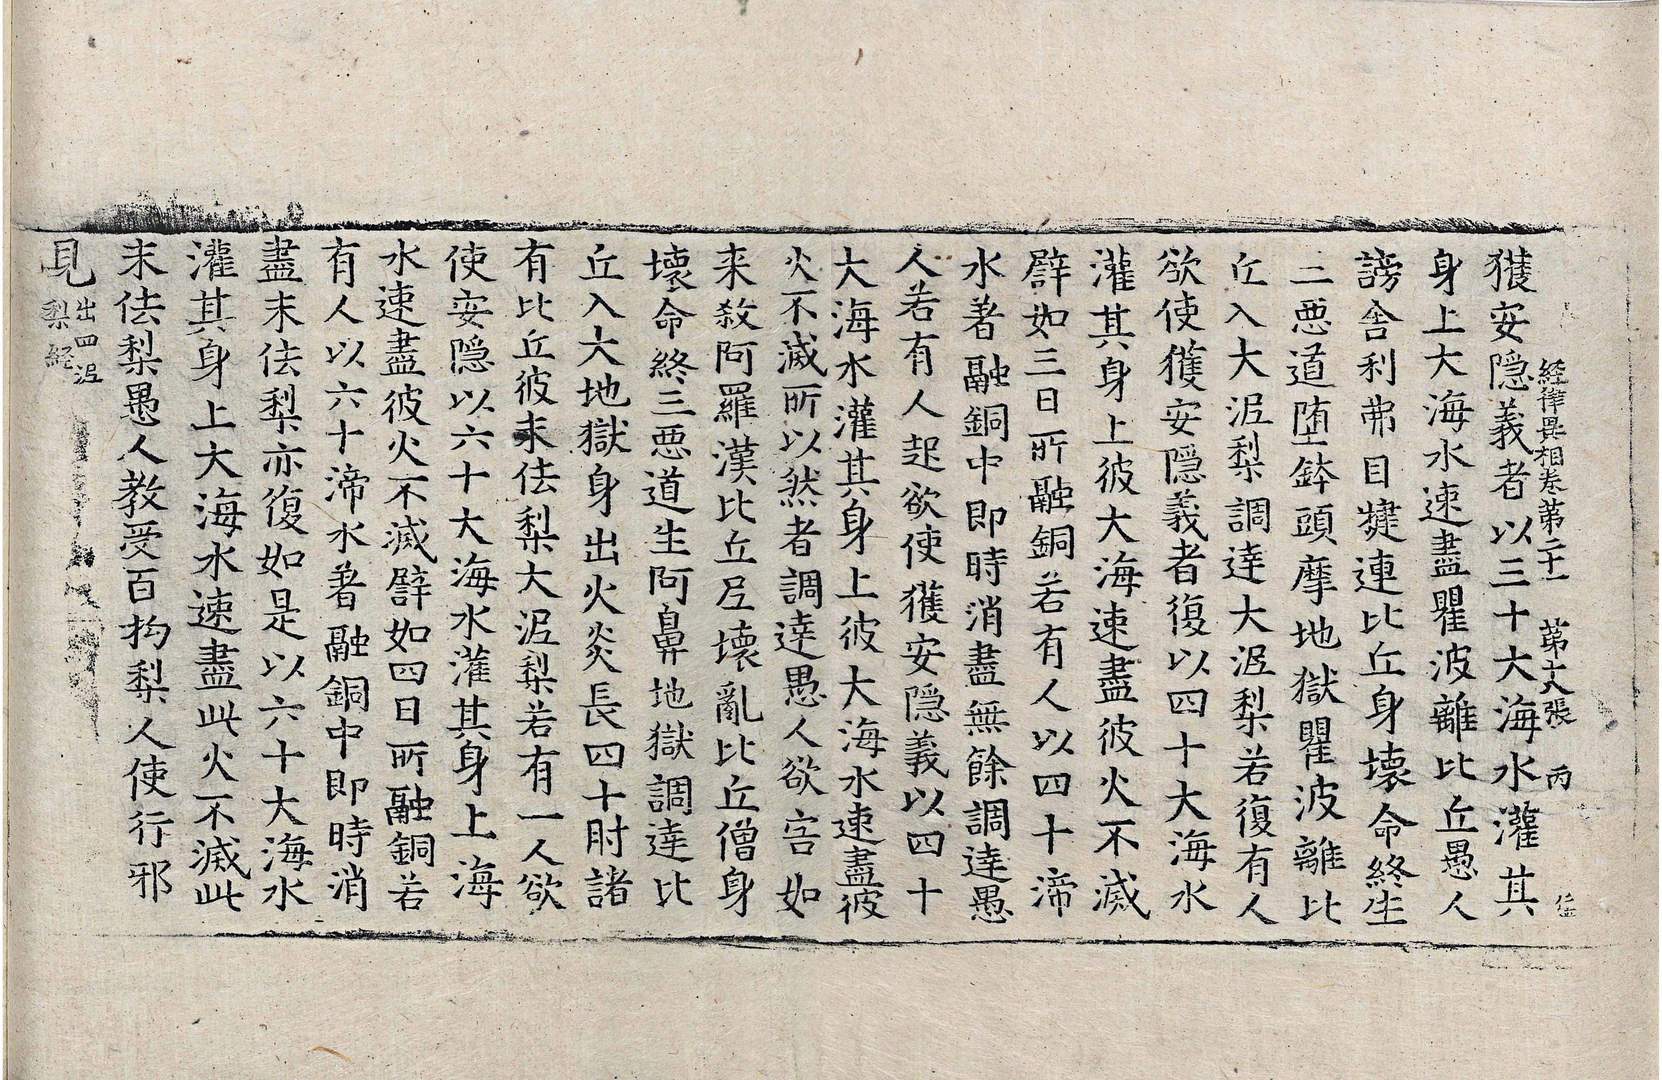 経律異相巻第二十一　第十八張　丙
獲安隱義者以三十大海水灌其
身上大海水速盡瞿波離比丘愚人
謗舎利弗目揵連比丘身壊命終生
三惡道堕鉢頭摩地獄瞿波離比
丘入大泥梨調達大泥梨若復有人
欲使獲安隱義者復以四十大海水
灌其身上彼大海速盡彼火不滅
譬如三日所融銅若有人以四十渧
水著融銅中即時消盡無餘調達愚
人若有人起欲使獲安隱義以四十
大海水灌其身上彼大海水速盡彼
火不滅所以然者調達愚人欲害如
来殺阿羅漢比丘尼壊亂比丘僧身
壊命終三惡道生阿鼻地獄調達比
丘入大地獄身出火炎長四十肘諸
有比丘彼末佉梨大泥梨若有一人欲
使安隱以六十大海水灌其身上海
水速盡彼火不滅譬如四日所融銅若
有人以六十渧水著融銅中即時消
盡末佉梨亦復如是以六十大海水
灌其身上大海水速盡此火不滅此
末佉梨愚人教受百拘梨人使行邪
見出四泥
梨經